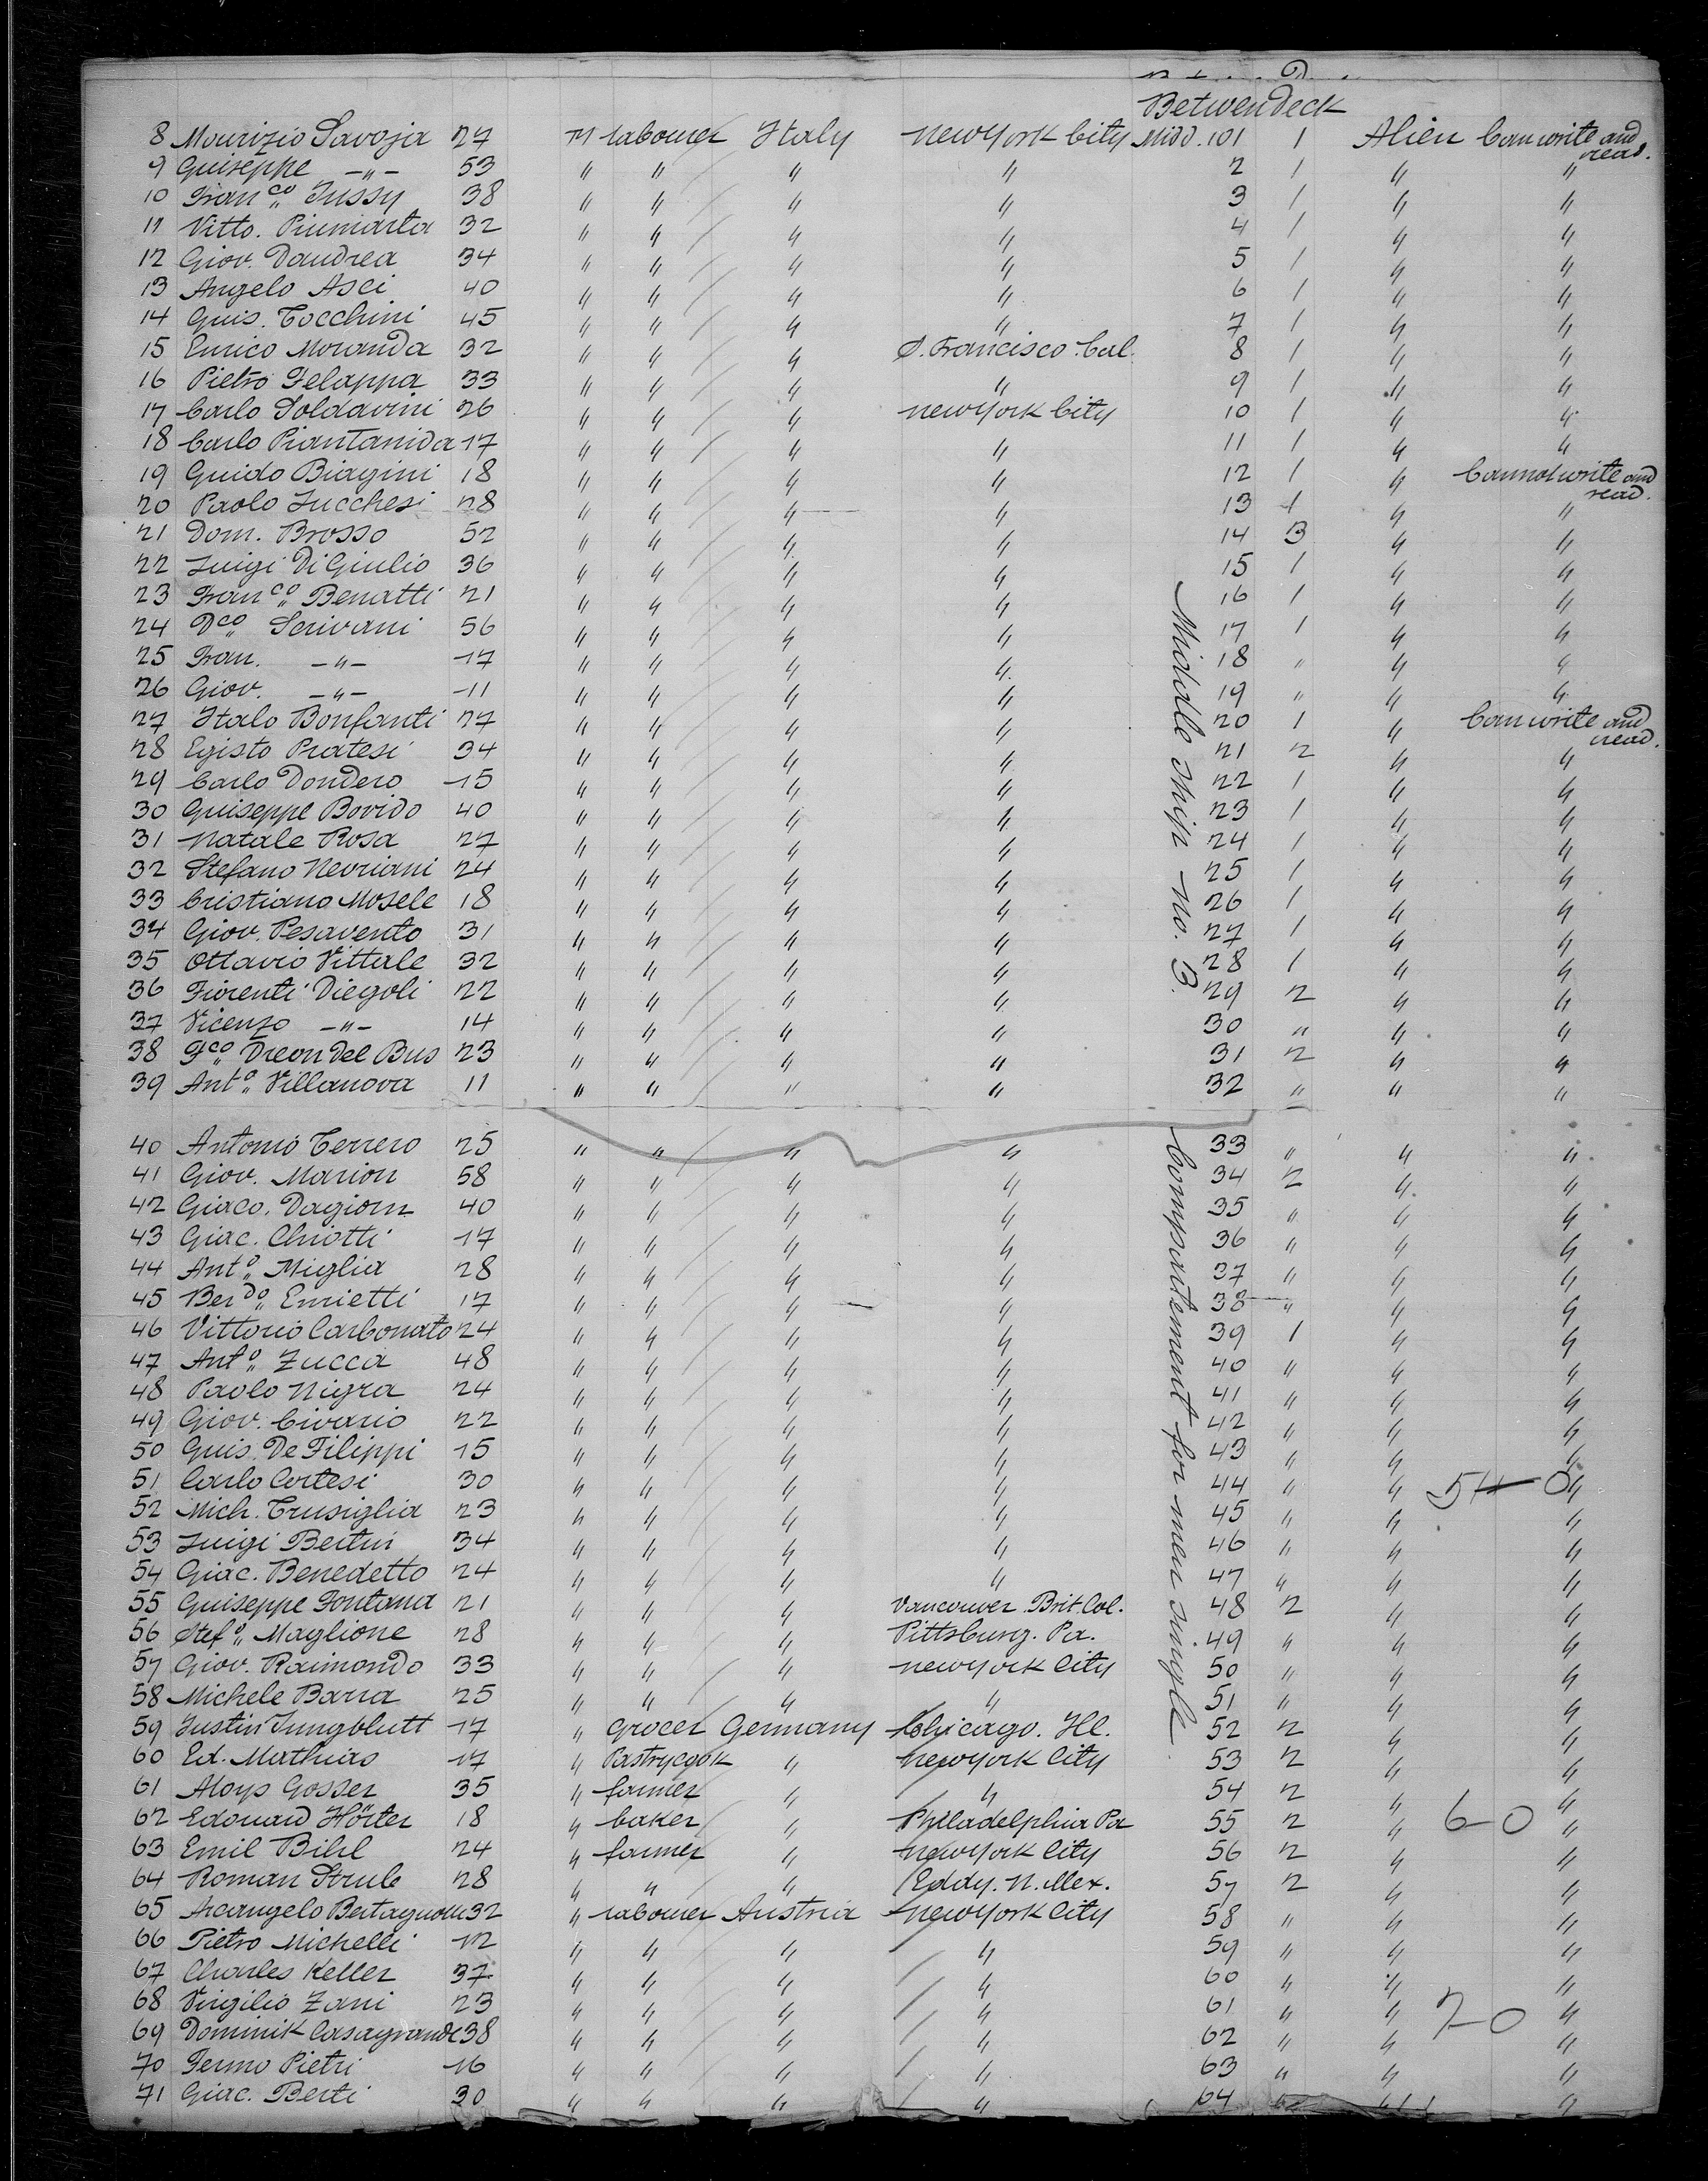 Betwendeck
8 Maurizio Savoja 27 M labourer Italy New York City Midd. 101 1 Alien Can write and read.
9 Guiseppe -"- 53 " " " " 2 1 " "
10 Fran.co Jussy 38 " " " " 3 1 " "
11 Vitto. Piumarta 32 " " " " 4 1 " "
12 Giov. Dandrea 34 " " " " 5 1 " "
13 Angelo Asci 40 " " " " 6 1 " "
14 Guis. Tocchini 45 " " " " 7 1 " "
15 Enrico Moranda 32 " " " S. Francisco Cal. 8 1 " "
16 Pietro Felappa 33 " " " " 9 1 " "
17 Carlo Soldavini 26 " " " New York City 10 1 " "
18 Carlo Piantanida 17 " " " " 11 1 " "
19 Guido Biagini 18 " " " " 12 1 " Cannot write and read.
20 Paolo Lucchesi 28 " " " " 13 1 " "
21 Dom. Brosso 52 " " " " 14 3 " "
22 Luigi Di Giulio 36 " " " " 15 1 " "
23 Fran.co Benatti 21 " " " " 16 1 " "
24 D.co Scrivani 56 " " " " 17 1 " "
25 Fran. -"- 17 " " " " 18 " " "
26 Giov. -"- 11 " " " " 19 " " "
27 Italo Bonfanti 27 " " " " 20 1 " Can write and read.
28 Egisto Pratesi 34 " " " " 21 2 " "
29 Carlo Dondero 15 " " " " 22 1 " "
30 Guiseppe Bovido 40 " " " " 23 1 " "
31 Natale Rosa 27 " " " " 24 1 " "
32 Stefano Nevriani 24 " " " " 25 1 " "
33 Cristiano Mosele 18 " " " " 26 1 " "
34 Giov. Pesavento 31 " " " " 27 1 " "
35 Ottavio Vittale 32 " " " " 28 1 " "
36 Fiorenti Diegoli 22 " " " " 29 2 " "
37 Vicenzo -"- 14 " " " " 30 " " "
38 F.co Dreon del Bus 23 " " " " 31 2 " "
39 Ant.o Villanova 11 " " " " 32 " " "
Middle ship No. 3.
40 Antonio Terrero 25 " " " " 33 " " "
41 Giov. Marion 58 " " " " 34 2 " "
42 Giaco. Dagiorn 40 " " " " 35 " " "
43 Giac. Chiotti 17 " " " " 36 " " "
44 Ant.o Miglia 28 " " " " 37 " " "
45 Ber.do Enrietti 17 " " " " 38 " " "
46 Vittorio Carbonato 24 " " " " 39 1 " "
47 Ant.o Zucca 48 " " " " 40 " " "
48 Paolo Nigra 24 " " " " 41 " " "
49 Giov. Civario 22 " " " " 42 " " "
50 Guis. De Filippi 15 " " " " 43 " " "
51 Carlo Cortesi 30 " " " " 44 " " "
52 Mich. Trusiglia 23 " " " " 45 " " "
53 Luigi Bertin 34 " " " " 46 " " "
54 Giac. Benedetto 24 " " " " 47 " " "
55 Guiseppe Fontana 21 " " " Vancouver Brit. Col. 48 2 " "
56 Stef.o Maglione 28 " " " Pittsburg. Pa. 49 " " "
57 Giov. Raimondo 33 " " " New York City 50 " " "
58 Michele Barra 25 " " " " 51 " " "
59 Justin Jungblutt 17 " grocer Germany Chicago. Ill. 52 2 " "
60 Ed. Mathias 17 " Pastrycook " New York City 53 2 " "
61 Aloys Gosser 35 " farmer " " 54 2 " "
62 Edouard Hörter 18 " baker " Philadelphia Pa 55 2 " 6-0 "
63 Emil Bihl 24 " farmer " New York City 56 2 " "
64 Roman Strub 28 " " " Eddy. N. Mex. 57 2 " "
65 Arcangelo Bertagnolli 32 " labourer Austria New York City 58 " " "
66 Pietro Michelli 12 " " " " 59 " " "
67 Charles Keller 37 " " " " 60 " " "
68 Virgilio Zani 23 " " " " 61 " " 7-0 "
69 Dominik Casagrande 38 " " " " 62 " " "
70 Fermo Pietri 16 " " " " 63 " " "
71 Giac. Berti 30 " " " " 64 " " "
Compartement for men single.